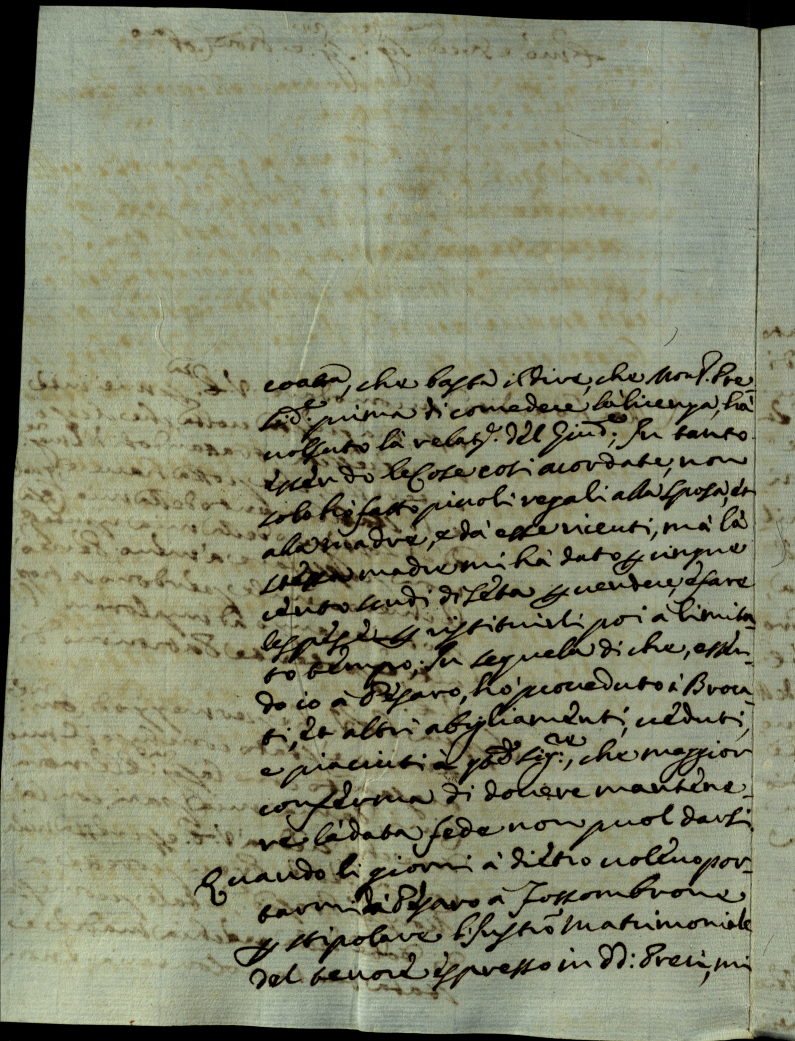 che basta il dire, che Mons.r Pre-
prima di concedere la licenza, hà
voluto la relat.e del Giud.e; In tanto
essendo le Cose così acordate, non
solo hò fatto piccioli regali alla Sposa, et
alla madre, e da esse ricevuti, mà là
stessa madre mi hà dato p cinque
cento scudi di seta p vendere, e fare
le spese p restituirli poi a limita-
to tempo; In sequela di che, essen-
do io à Pesaro, hò proveduto i Broca-
ti, et altri abigliamenti, veduti,
e piaciuti à che maggior
conferma di dovere mantene-
re la data fede non puol darsi
Quando li giorni à dietro volevo por-
tarmi dà Pesaro à Fossombrone
p stipolare Matrimoniale
del tenore espresso in dd: Preci, mi